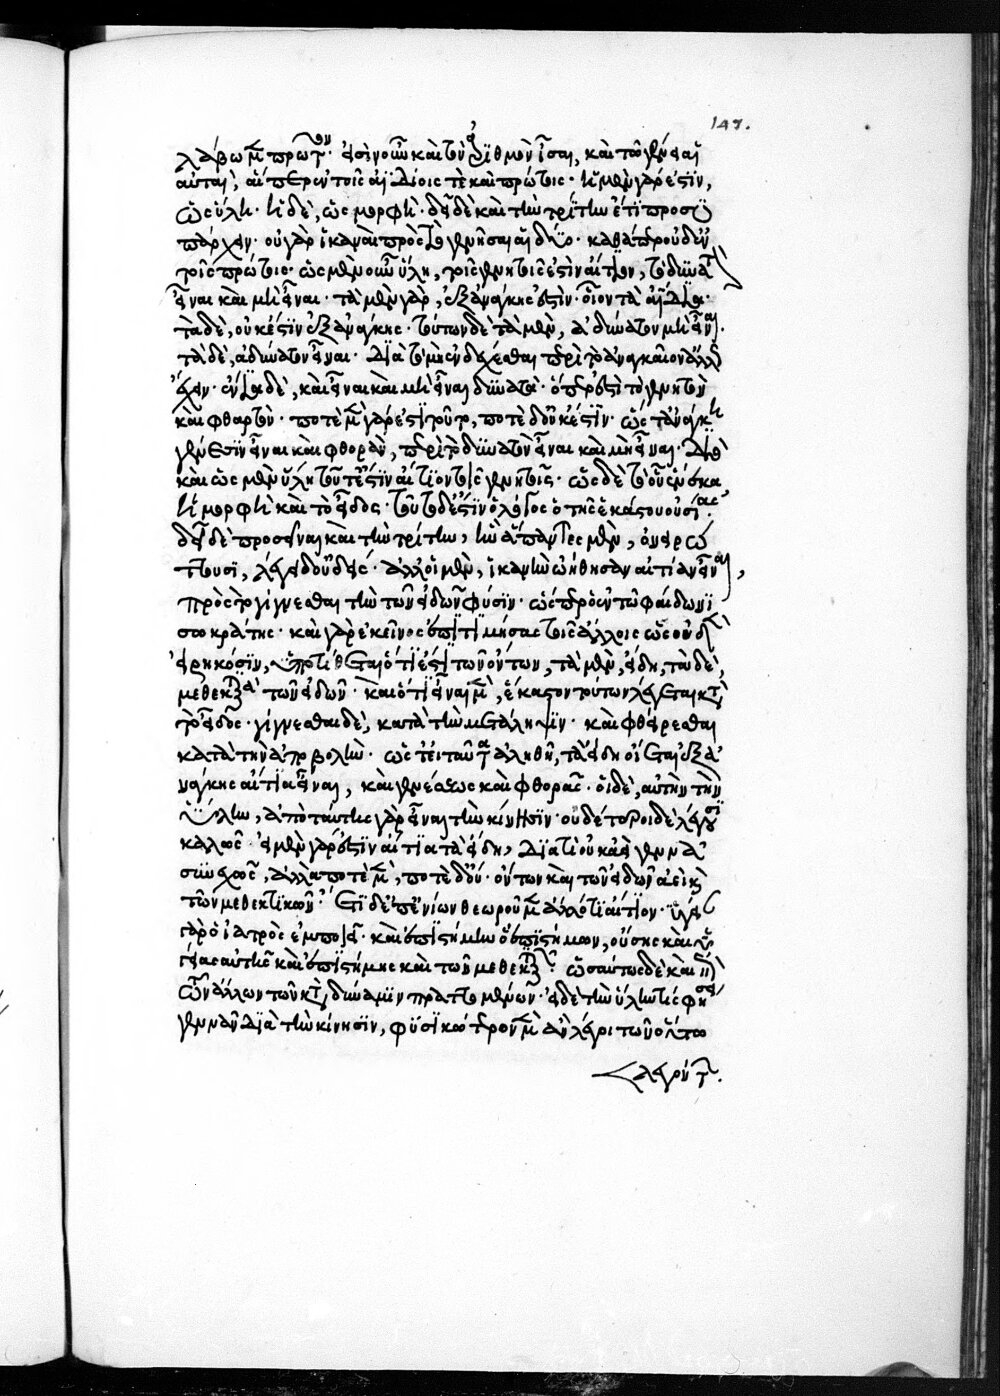 147.
λάβωμεν πρῶτον. εἰσὶν οὖν καὶ τὸν ἀριθμὸν ἴσαι, καὶ τῷ γένει αἱ
αὐταὶ, αἵπερ ἐν τοῖς ἀϊδίοις τὲ καὶ πρώτοις. ἡ μὲν γάρ ἐστιν,
ὡς ὕλη. ἡ δὲ, ὡς μορφή. δεῖ δὲ καὶ τὴν τρίτην ἔτι προσυ
πάρχειν. οὐ γὰρ ἱκαναὶ πρὸς τὸ γεννῆσαι αἱ δύο. καθάπερ οὐδ' ἐν
τοῖς πρώτοις. ὡς μὲν οὖν ὕλη, τοῖς γενητοῖς ἐστὶν αἴτιον, τὸ δυνατὸν
εἶναι καὶ μὴ εἶναι. τὰ μὲν γὰρ, ἐξ ἀνάγκης ἐστίν. οἷον τὰ ἀΐδια.
τὰ δὲ, οὐκ ἔστιν ἐξ ἀνάγκης. τούτων δὲ τὰ μὲν, ἀδύνατον μὴ εἶναι.
τὰ δὲ, ἀδύνατον εἶναι. διὰ τὸ μὴ ἐνδέχεσθαι παρὰ τὸ ἀναγκαῖον ἄλλως
ἔχειν. ἔνια δὲ, καὶ εἶναι καὶ μὴ εἶναι δυνατά. ὅπερ ἐστὶ τὸ γενητὸν
καὶ φθαρτόν. ποτὲ μὲν γάρ ἐστι τοῦτο, ποτὲ δ' οὐκ ἔστιν. ὥστ' ἀνάγκη
γένεσιν εἶναι καὶ φθορὰν, περὶ τὸ δυνατὸν εἶναι καὶ μὴ εἶναι. διὸ
καὶ ὡς μὲν ὕλη τοῦτ' ἐστὶν αἴτιον τοῖς γενητοῖς. ὡς δὲ τὸ οὗ ἕνεκα
ἡ μορφὴ καὶ τὸ εἶδος. τοῦτο δ' ἐστὶν ὁ λόγος ὁ τῆς ἑκάστου οὐσίας.
δεῖ δὲ προσεῖναι καὶ τὴν τρίτην, ἣν ἅπαντες μὲν, ὀνειρώ
ττουσι, λέγει δ' οὐδείς. ἀλλ' οἱ μὲν, ἱκανὴν ᾠήθησαν αἰτίαν εἶναι,
πρὸς τὸ γίγνεσθαι τὴν τῶν εἰδῶν φύσιν. ὥσπερ ὁ ἐν τῷ φαίδωνι
σωκράτης. καὶ γὰρ ἐκεῖνος ἐπιτιμήσας τοῖς ἄλλοις ὡς οὐδὲν
εἰρηκόσιν, ὑποτίθεται ὅτι ἐστὶ τῶν ὄντων, τὰ μὲν, εἴδη, τὰ δὲ,
μεθεκτικὰ τῶν εἰδῶν. καὶ ὅτι εἶναι μὲν, ἕκαστον τούτων λέγεται κατὰ
τὸ εἶδος. γίγνεσθαι δὲ, κατὰ τὴν μετάληψιν. καὶ φθείρεσθαι
κατὰ τὴν ἀποβολήν. ὥστ' εἰ ταῦτα ἀληθῆ, τὰ εἴδη οἴεται ἐξ ἀ
νάγκης αἰτία εἶναι, καὶ γενέσεως καὶ φθορᾶς. οἱ δὲ, αὐτὴν τὴν
ὕλην, ἀπὸ ταύτης γὰρ εἶναι τὴν κίνησιν. οὐδέτεροι δὲ λέγουσι
καλῶς. εἰ μὲν γάρ ἐστιν αἴτια τὰ εἴδη, διατί οὐκ ἀεὶ γεννᾷ
συνεχῶς, ἀλλὰ ποτὲ μὲν, ποτὲ δ' οὔ. ὄντων καὶ τῶν εἰδῶν ἀεὶ καὶ
τῶν μεθεκτικῶν. ἔτι δ' ἐπ' ἐνίων θεωροῦμεν ἄλλό τι αἴτιον. ὑγίειαν
γὰρ ὁ ἰατρὸς ἐμποιεῖ. καὶ ἐπιστήμην ὁ ἐπιστήμων, οὔσης καὶ ὑ
γείας αὐτῆς καὶ ἐπιστήμης καὶ τῶν μεθεκτικῶν. ὡσαύτως δὲ καὶ ἐπὶ
τῶν ἄλλων τῶν κατὰ δύναμιν πραττομένων. εἰ δὲ τὴν ὕλην τίς φήσειε
γεννᾶν διὰ τὴν κίνησιν, φυσικώτερον μὲν ἂν λέγοι τῶν οὕτω
λεγόντων.